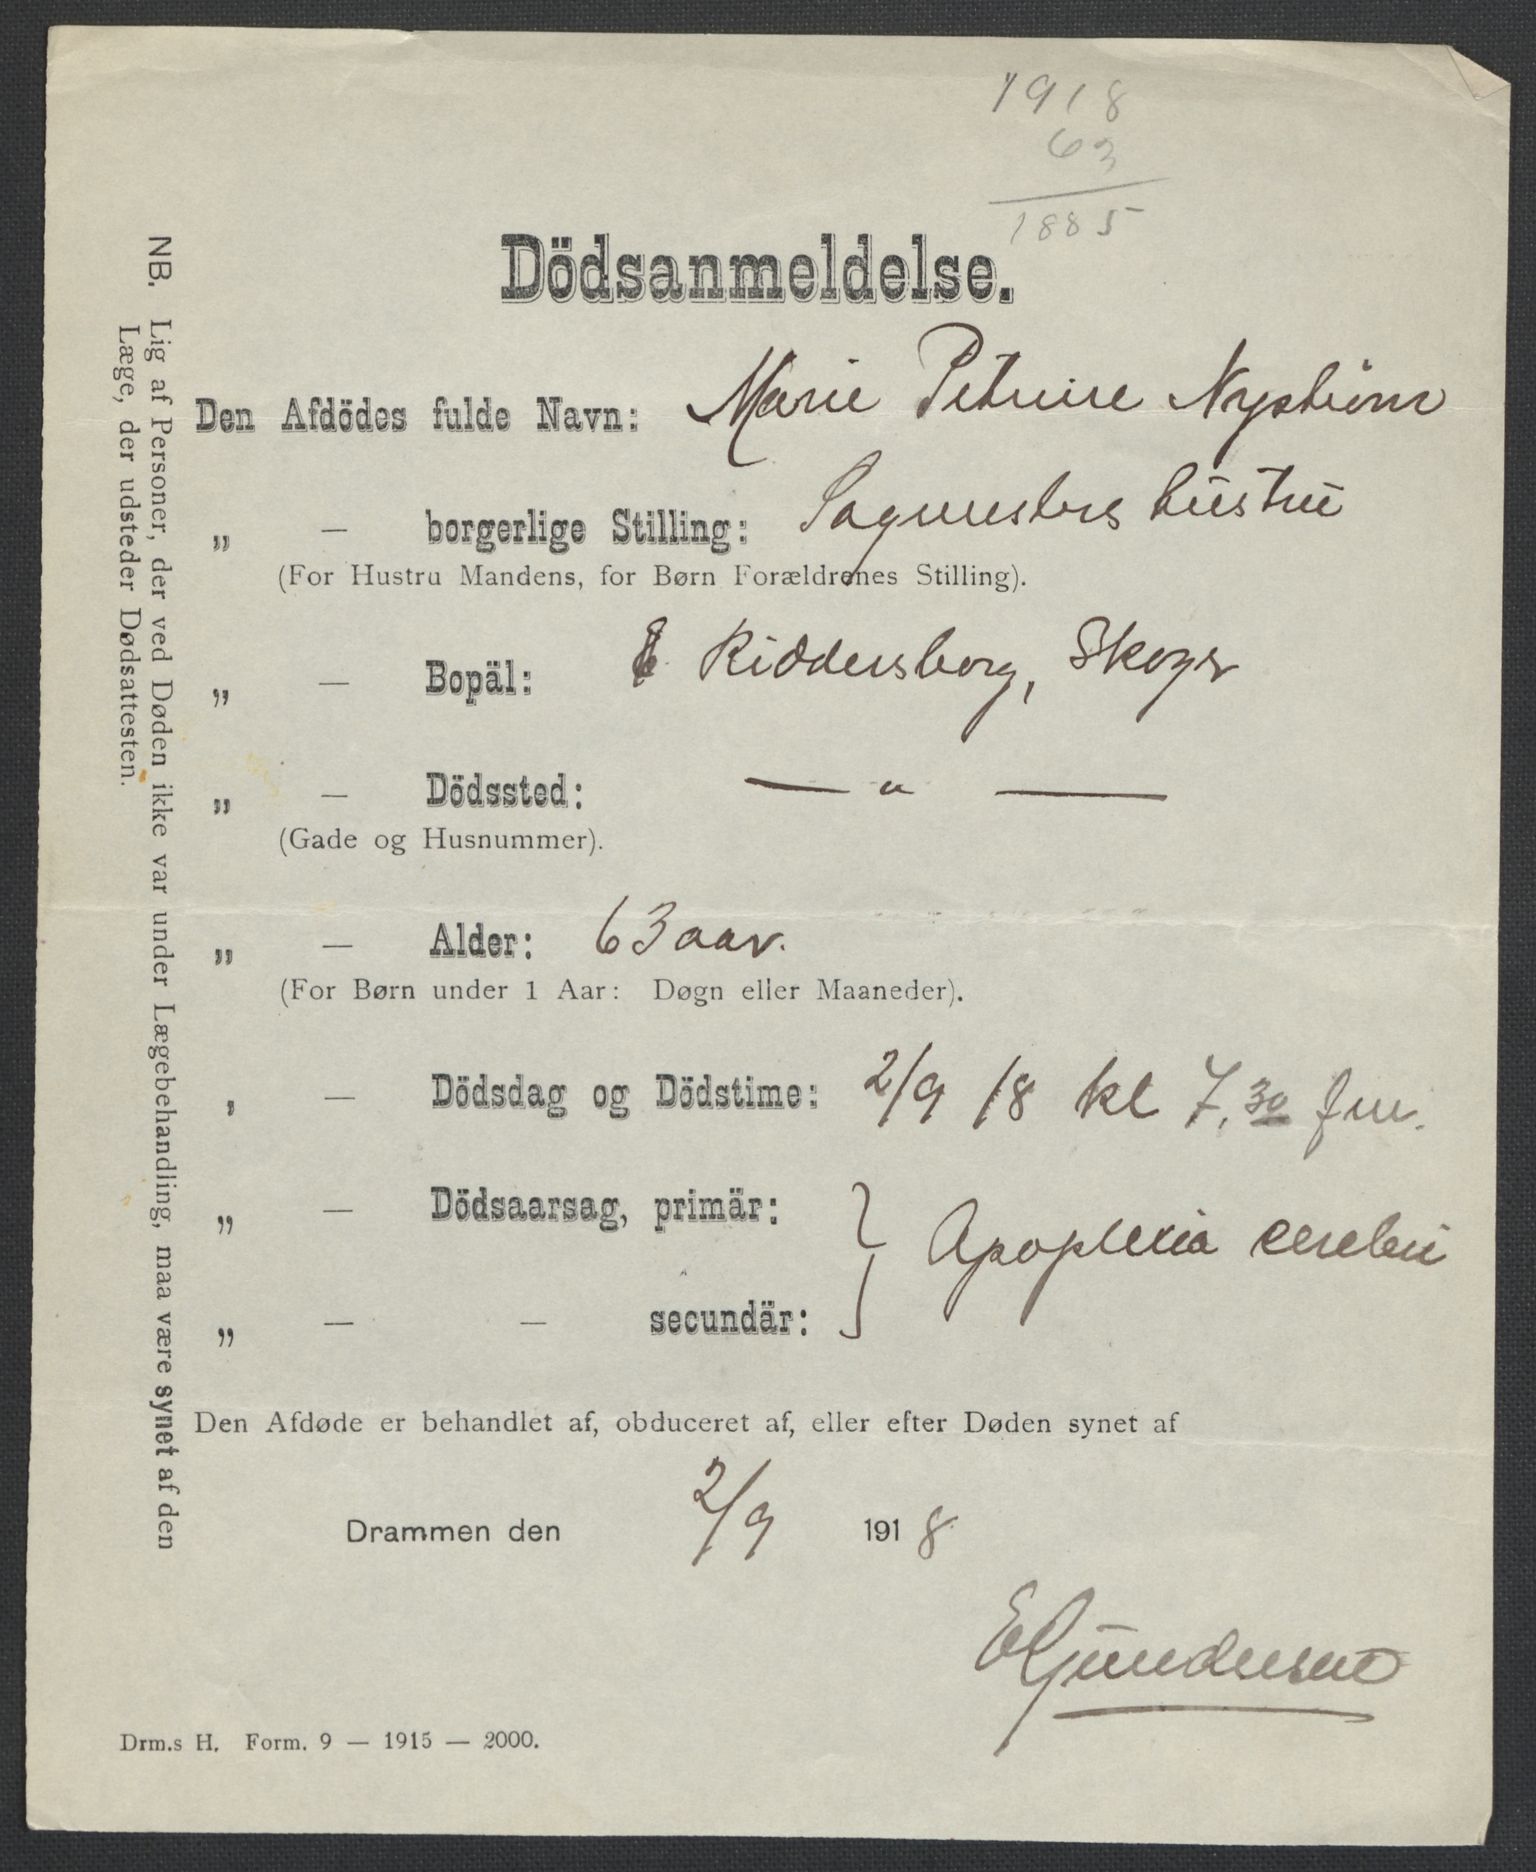 1918
63
1885
Dödsanmeldelse.
Den Afdödes fulde Navn: Marie Petrine Nyström
„ — borgerlige Stilling: Sagmesters hustru
(For Hustru Mandens, for Børn Forældrenes Stilling).
„ — Bopäl: Riddersborg, Skoger
„ — Dödssted: — „ —
(Gade og Husnummer).
„ — Alder: 63 aar.
(For Børn under 1 Aar: Døgn eller Maaneder).
, — Dödsdag og Dödstime: 2/9 18 kl 7,30 fm.
„ — Dödsaarsag, primär: } Apoplexia cerebri
„ — — secundär:
Den Afdøde er behandlet af, obduceret af, eller efter Døden synet af
Drammen den 2/9 1918
E Gundersen
Drm.s H. Form. 9 — 1915 — 2000.
NB. Lig af Personer, der ved Døden ikke var under Lægebehandling, maa være synet af den
Læge, der udsteder Dødsattesten.